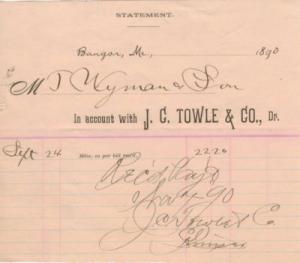 STATEMENT.
Bangor, Me., 1890
M T Wyman & Son
In account with J. C. TOWLE & CO., Dr.
Sept 24 Mdse. as per bill rend. 22 20
Rec'd Pay't
90
J C Towle & Co